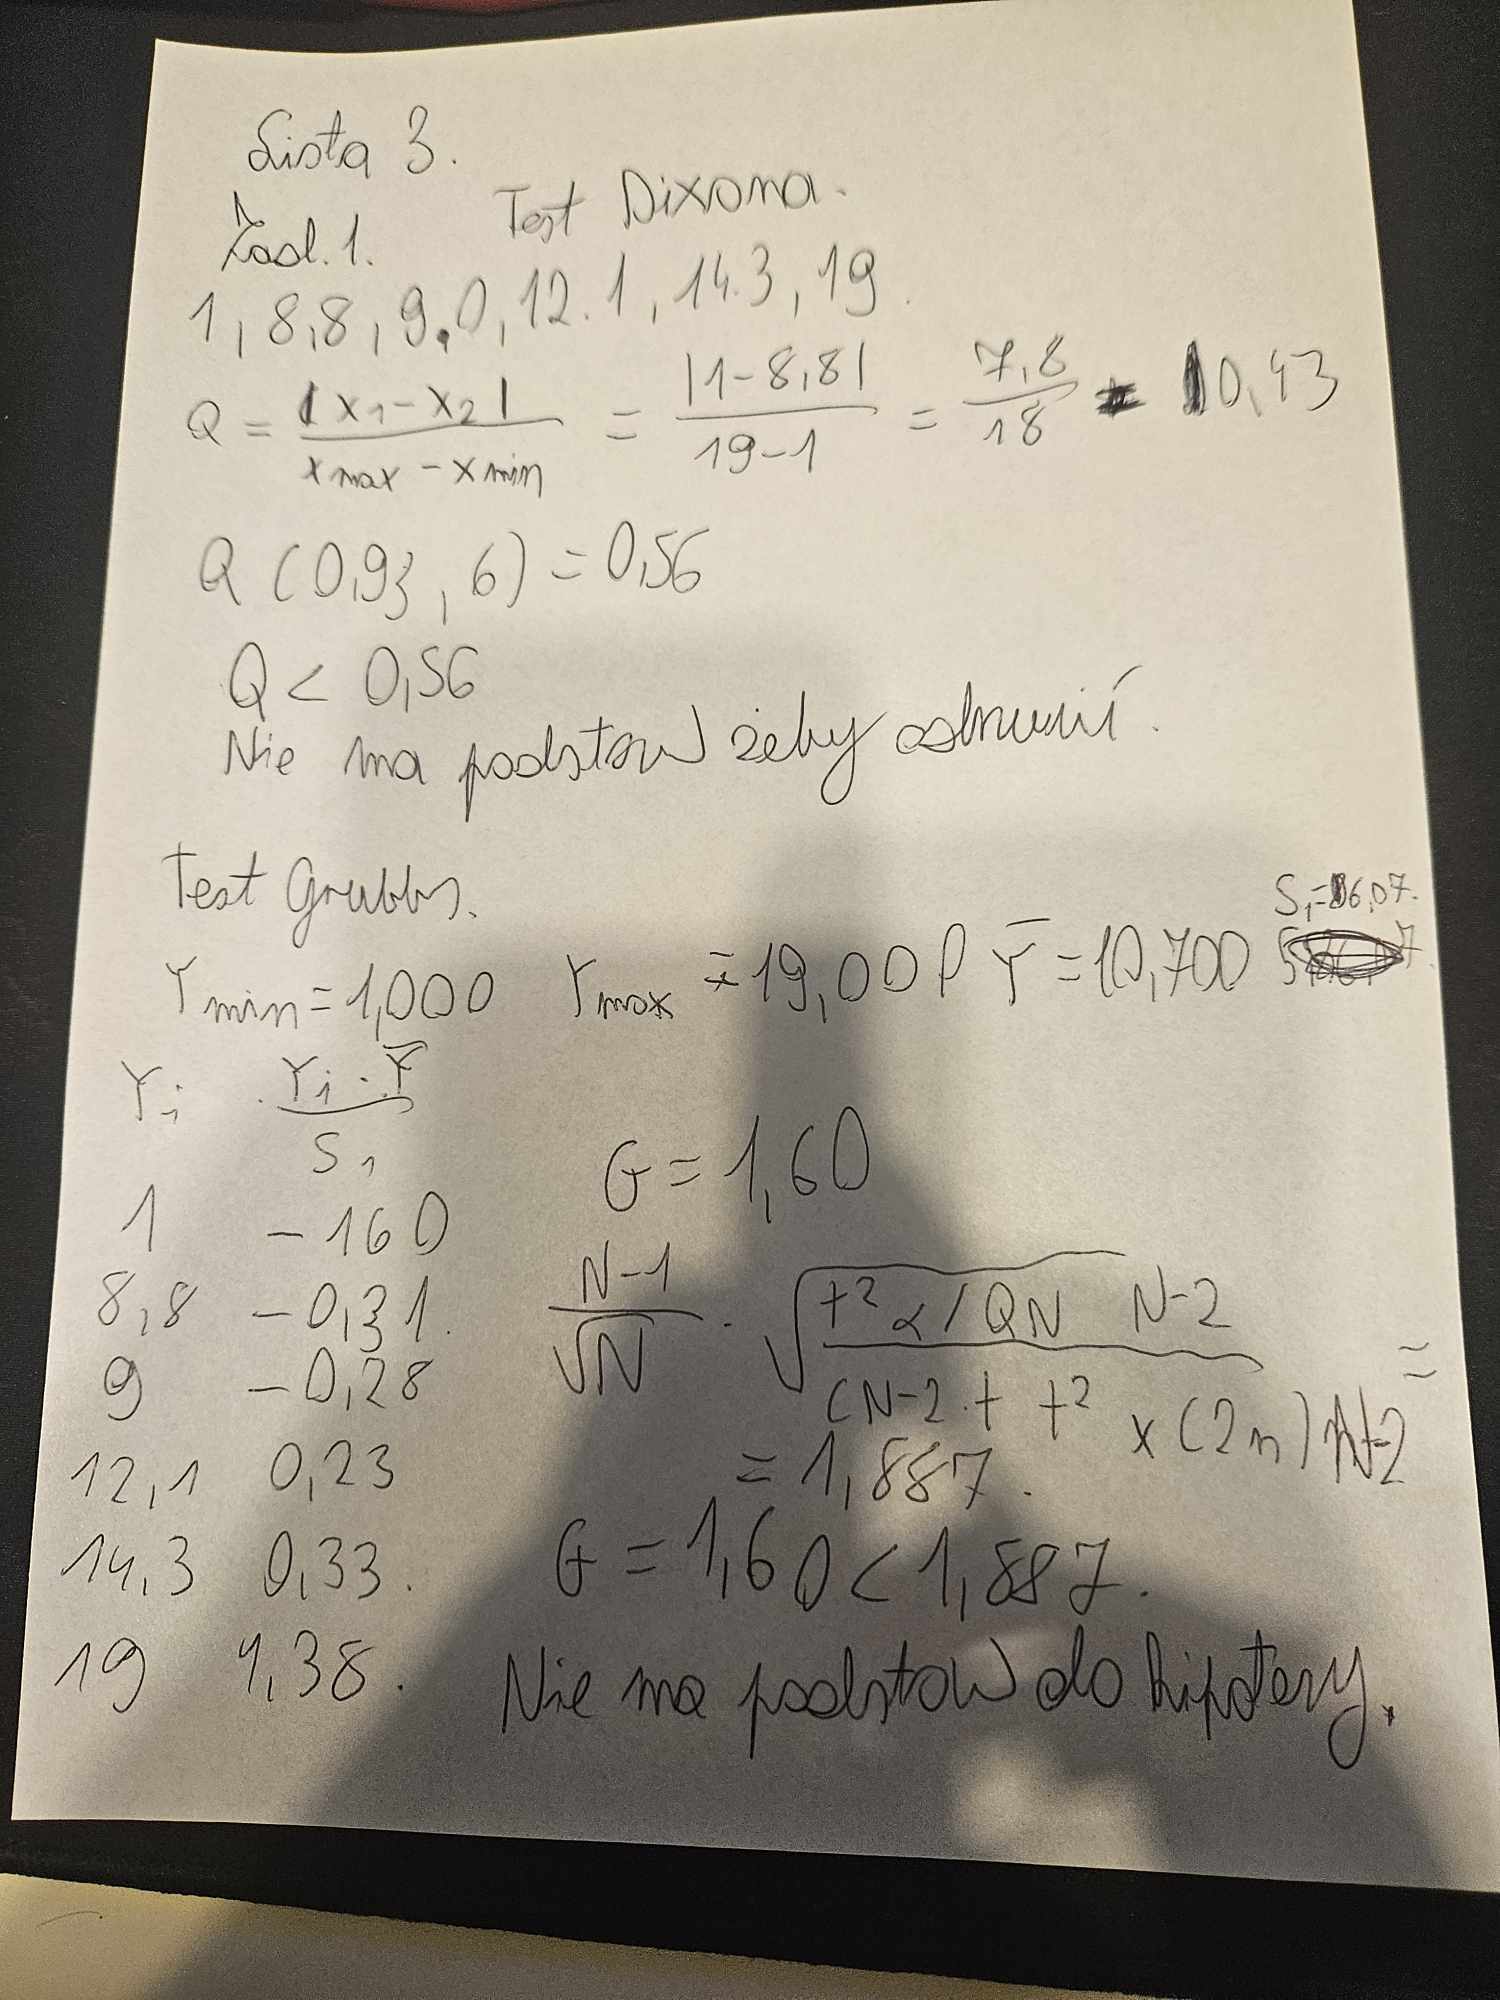 Lista 3.
Zad. 1. Test Dixona.
1, 8,8, 9.0, 12.1, 14.3, 19.
Q = |x1-x2| / xmax - xmin = |1-8,8| / 19-1 = 7,8 / 18 = 0,43
Q (0,93, 6) = 0,56
Q < 0,56
Nie ma podstaw żeby odrzucić.
Test Grubbs.
S1 = 6,07.
Ymin = 1,000 Ymax = 19,000 Ȳ = 10,700
Yi Yi - Ȳ / S1
G = 1,60
1 -160
8,8 -0,31.
9 -0,28
12,1 0,23
14,3 0,33.
19 1,38.
N-1 / √N · √ t² α/QN N-2 / (N-2 + t² x (2n) N-2 =
= 1,887.
G = 1,60 < 1,887.
Nie ma podstaw do hipotezy.